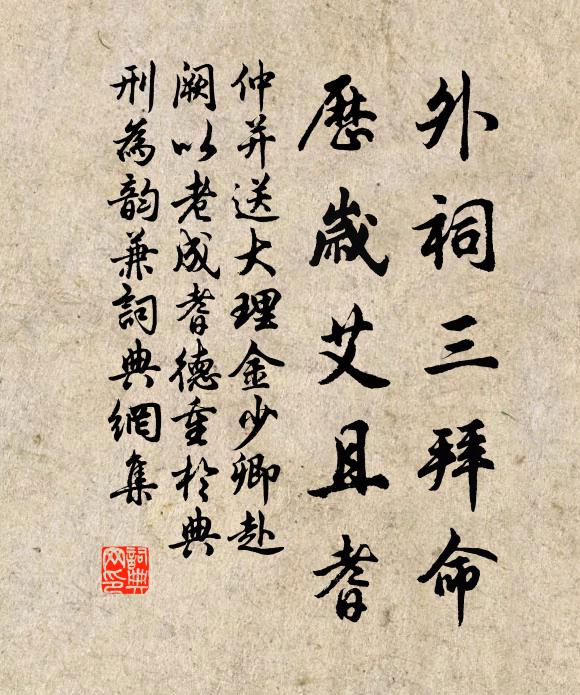 外祠三拜命
歷歲艾且耆
仲并送大理金少卿赴
闕以老成耆德重於典
刑為韵兼詞典網集
詞典
网印